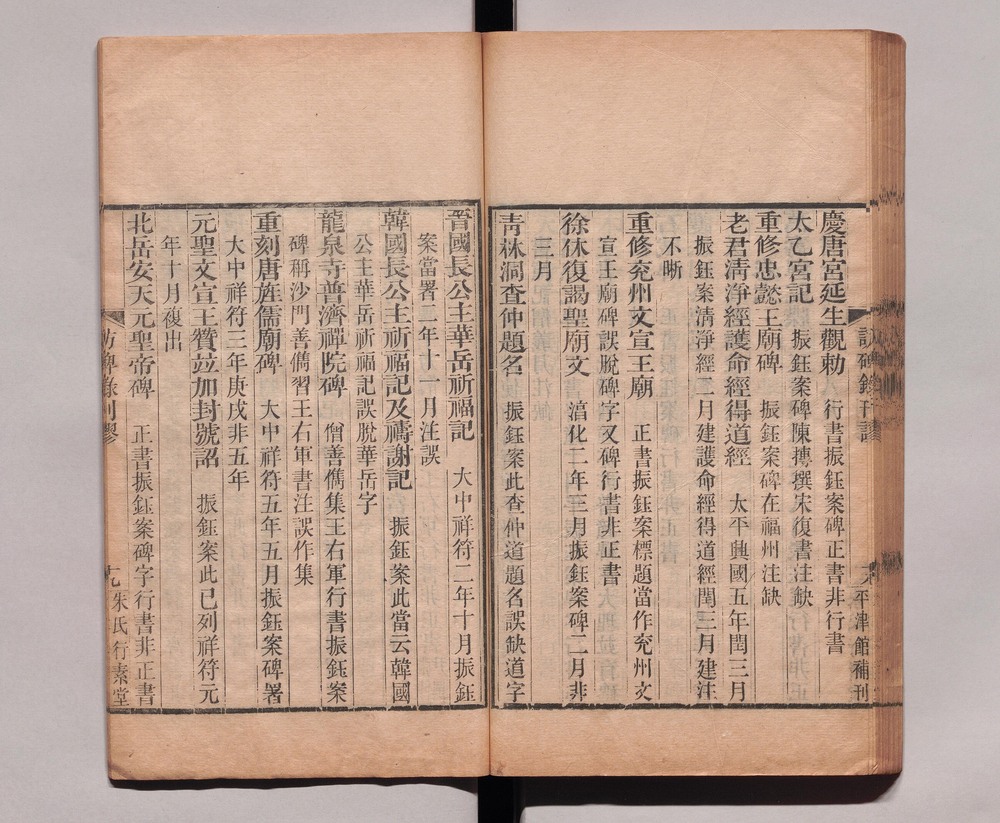 慶唐宮延生觀勅　行書振鈺案碑正書非行書
太乙宮記　振鈺案碑陳摶撰宋復書注缺
重修忠懿王廟碑　振鈺案碑在福州注缺
老君清淨經護命經得道經　太平興國五年閏三月
振鈺案清淨經二月建護命經得道經閏三月建注
不晰
重修兖州文宣王廟　正書振鈺案標題當作兖州文
宣王廟碑誤脫碑字又碑行書非正書
徐休復謁聖廟文　湻化二年三月振鈺案碑二月非
三月
青林洞查仲題名　振鈺案此查仲道題名誤缺道字
平津館補刊
晉國長公主華岳祈福記　大中祥符二年十月振鈺
案當署二年十一月注誤
韓國長公主祈福記及禱謝記　振鈺案此當云韓國
公主華岳祈福記誤脫華岳字
龍泉寺普濟禪院碑　僧善儁集王右軍行書振鈺案
碑稱沙門善儁習王右軍書注誤作集
重刻唐旌儒廟碑　大中祥符五年五月振鈺案碑署
大中祥符三年庚戌非五年
元聖文宣王贊竝加封號詔　振鈺案此已列祥符元
年十月複出
北岳安天元聖帝碑　正書振鈺案碑字行書非正書
訪碑錄刊謬
九
朱氏行素堂